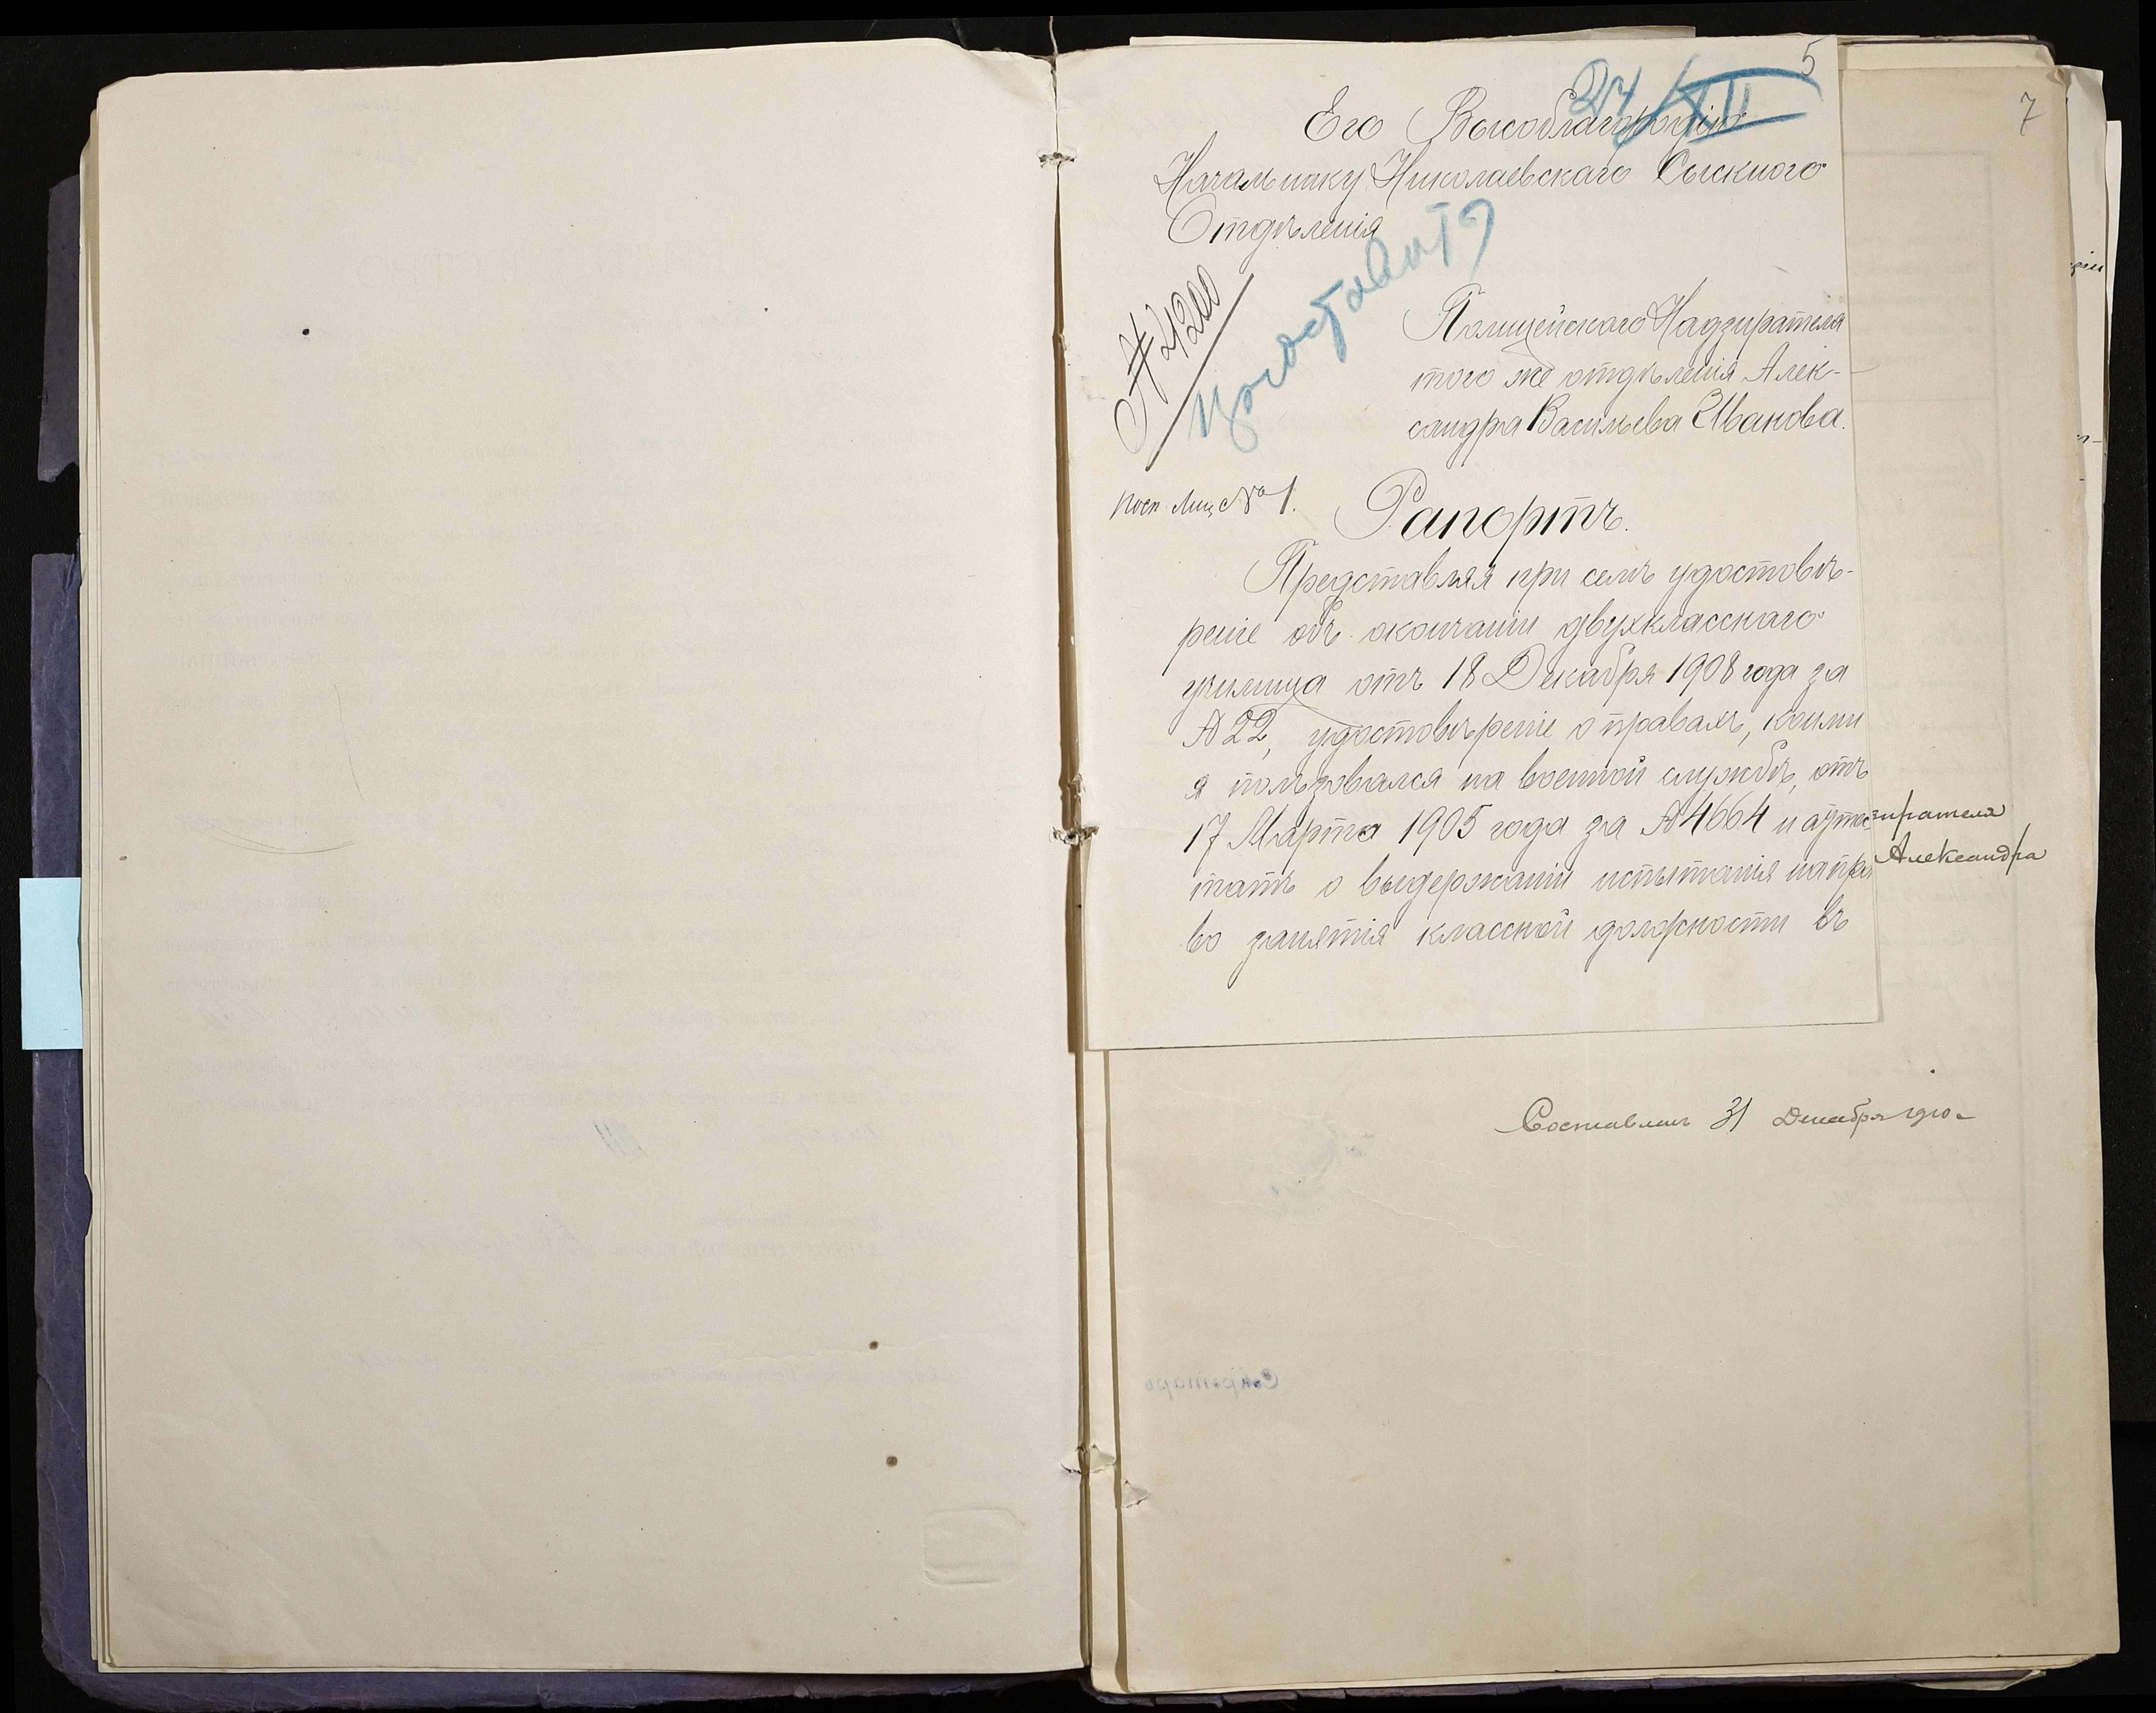 5
7
24/XII
Его Высокоблагородію
Начальнику Николаевскаго Сыскного
Отдѣленія
№ 4200
Полицейскаго Надзирателя
того же отдѣленія Алек-
сандра Васильева Иванова.
№ 1.
Рапортъ.
Представляя при семъ удостовѣ-
реніе объ окончаніи двухкласснаго
училища отъ 18 Декабря 1908 года за
№ 22, удостовѣреніе о правахъ, коими
я пользовался на военной службѣ, отъ
17 Марта 1905 года за № 4664 и аттес-
татъ о выдержаніи испытанія на пра-
во занятія классной должности въ
зирателя
Александра
Составленъ 31 Декабря 1910 г.
Секретарь